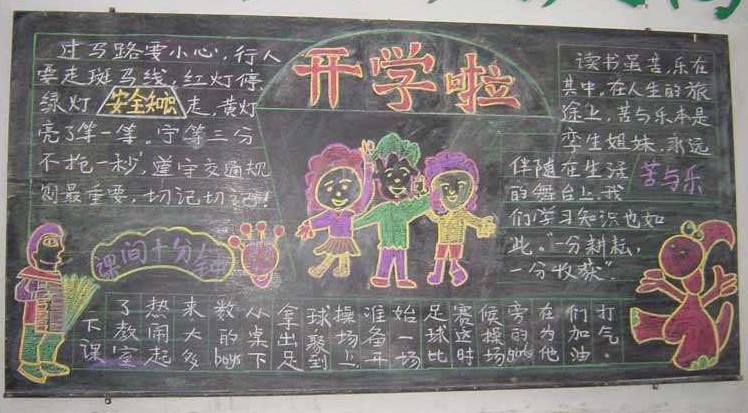 开学啦
过马路要小心，行人
要走斑马线，红灯停，
绿灯 安全知识 走，黄灯
亮了等一等。宁等三分
不抢一秒，遵守交通规
则最重要，切记切记！
读书虽苦，乐在
其中，在人生的旅
途上，苦与乐本是
孪生姐妹，永远
伴随在生活
的舞台上，我
们学习知识也如
此。“一分耕耘，
一分收获”
苦与乐
课间十分钟
下课
了教室
热闹起
来大多
数的boys
从桌下
拿出足
球聚到
操场上
准备开
始一场
足球比
赛这时
候操场
旁的girls
在为他
们加油
打气。